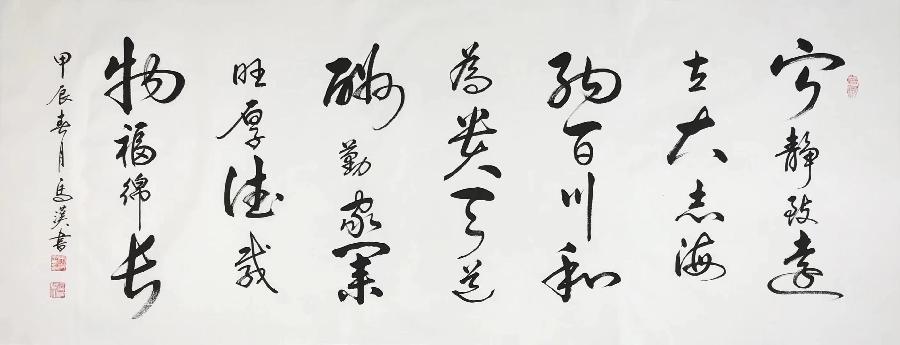 宁静致远
立大志海
纳百川和
为贵天道
酬勤家业
旺厚德载
物福绵长
甲辰春月马汉书